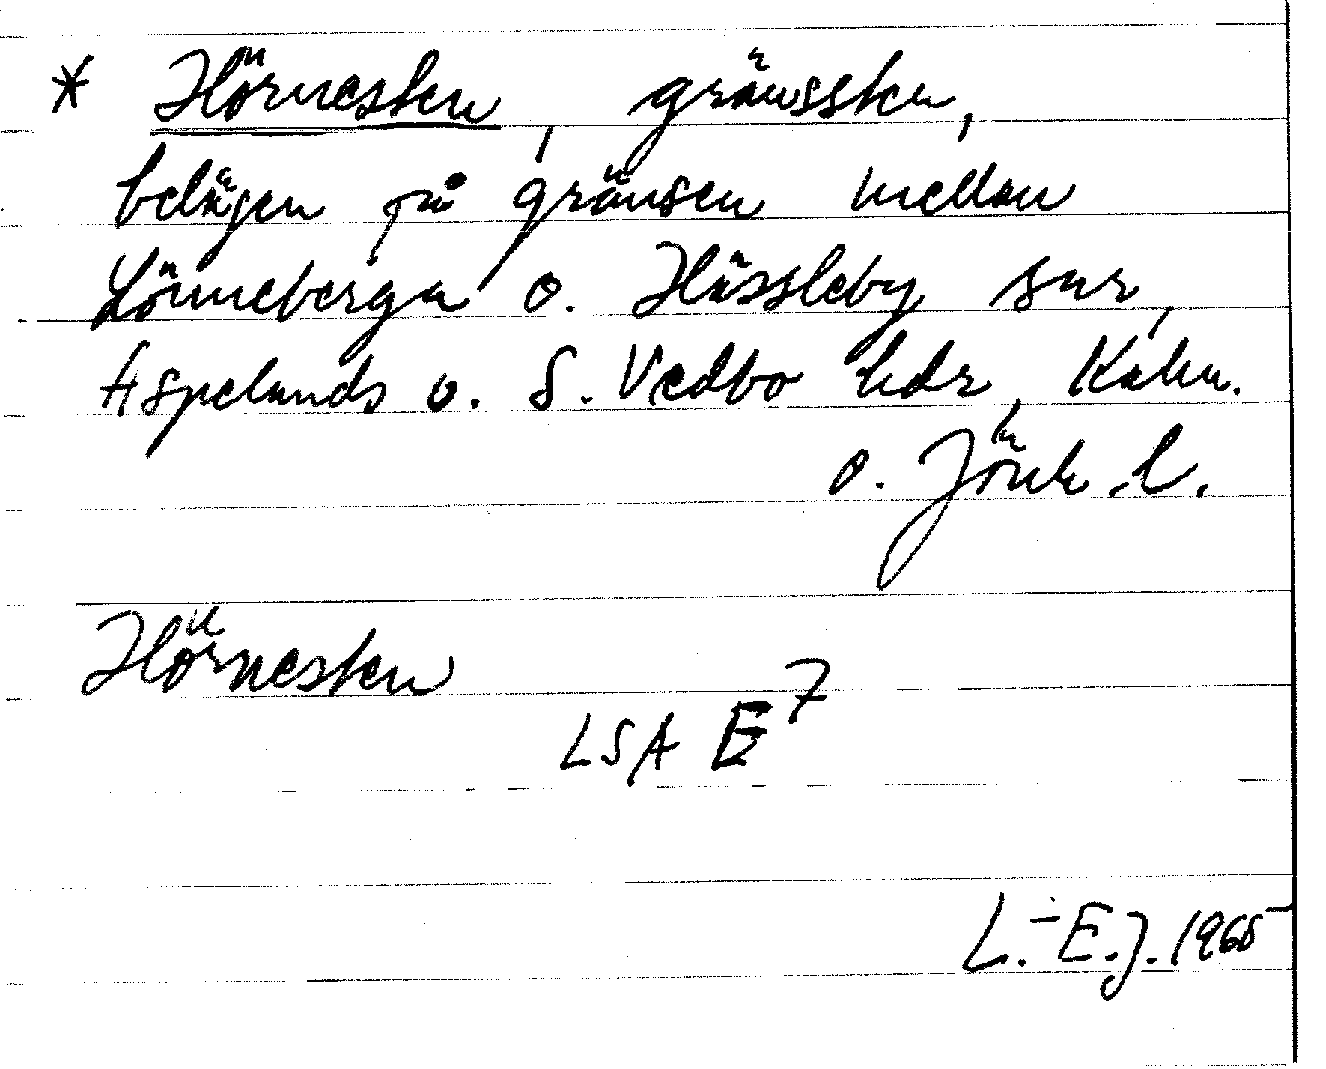 * Hörnesten, gränssten,
belägen på gränsen mellan
Lönneberga o. Hässleby snr,
Aspelands o. S. Vedbo hdr, Kalm.
o. Jönk. l.
Hörnesten
LSA E7
L.-E.J. 1965